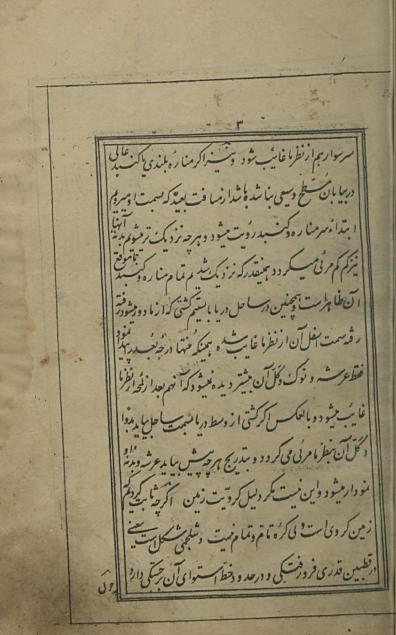 ۳
سر سوار هم از نظر ما غایب شود و نیز اگر مناره بلندی یا گنبد عالی
در بیابان مسطح وسیعی بنا شده باشد از مسافت بعیده که سمت او برویم
ابتداء سر مناره و گنبد رویت میشود و هر چه نزدیک تر میشویم بدنه آنها
نیز کم کم مرئی میگردد همینقدر که نزدیک شدیم تمام مناره و گنبد
آن ظاهر است و همچنین در ساحل دریا بایستیم کشتی که از ما دور میشود رفته
رفته سمت اسفل آن از نظر ما غایب شده همینکه منتها درجه بعد پیدا نمود
فقط عرشه و نوک دگل آن بیشتر دیده نمیشود که آنهم بعد از لمحه از نظر ما
غایب میشود و بالعکس اگر کشتی از وسط دریا بسمت ساحل بیاید بدوا
دگل آن بنظر ما مرئی میگردد و بتدریج هر چه پیش بیاید عرشه و بدنه او
نمودار میشود و این نیست مگر دلیل کرویت زمین اگر چه ثابت کردیم
زمین کروی است ولی کره تام و تمام نیست و شلجمی شکل است یعنی
در قطبین قدری فرورفتگی و در حدود خط استوای آن برجستگی دارد